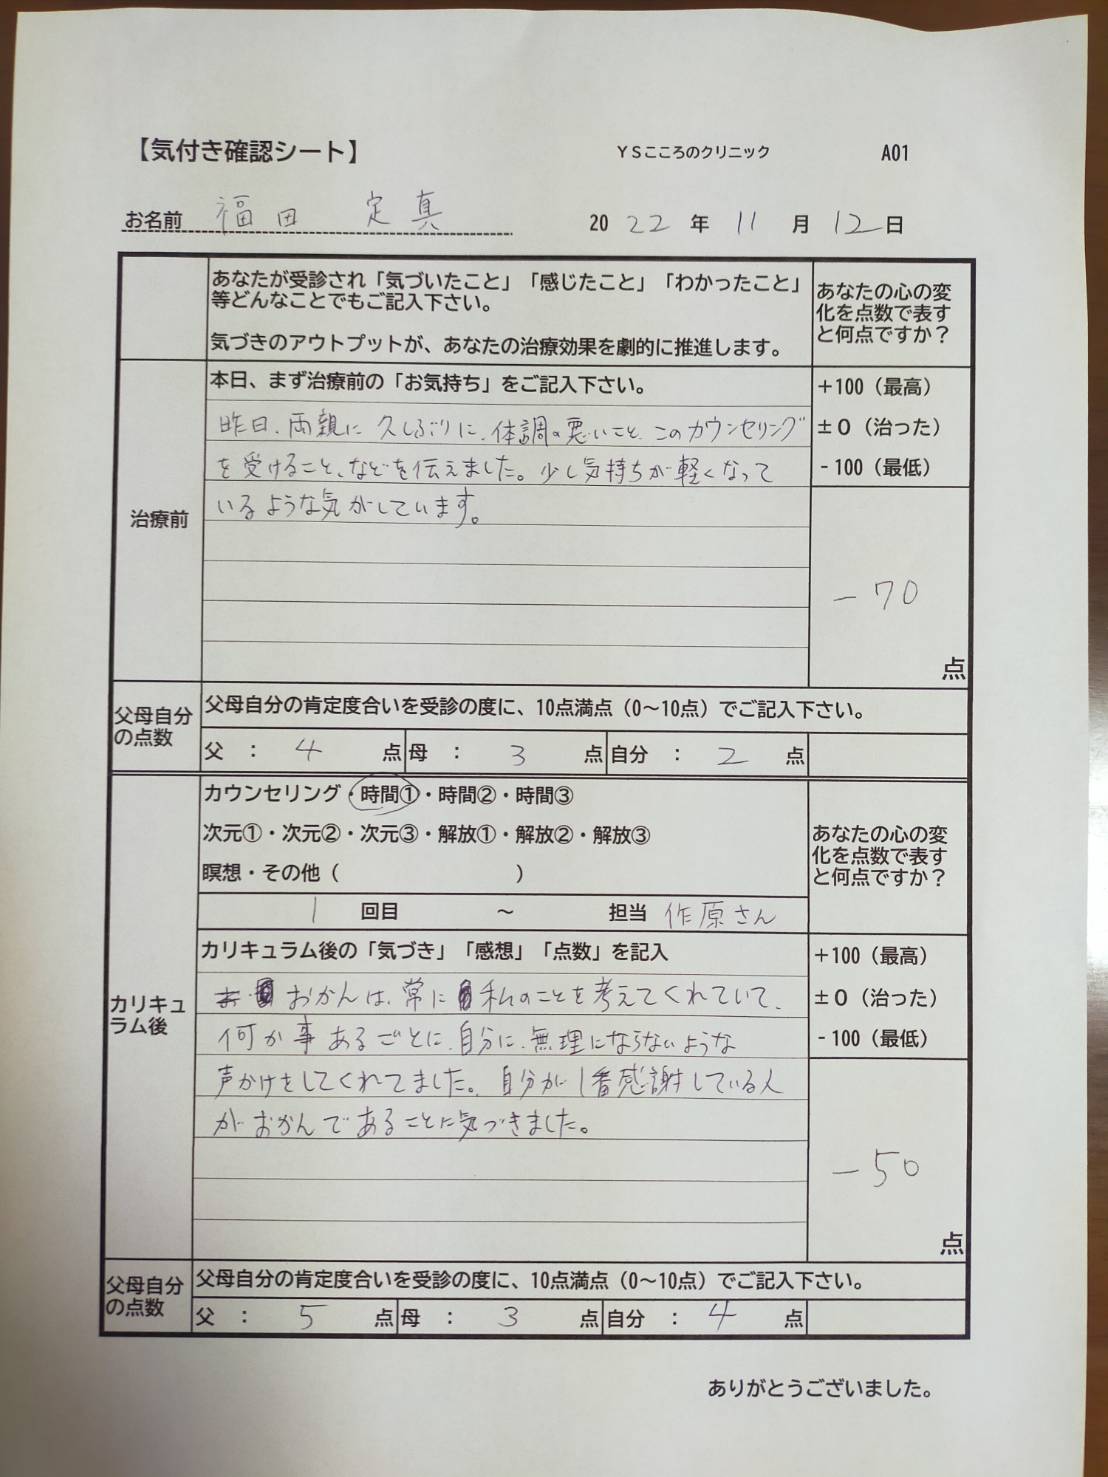 【気付き確認シート】 YSこころのクリニック A01
お名前 福田 定真 2022年11月12日
あなたが受診され「気づいたこと」「感じたこと」「わかったこと」
等どんなことでもご記入下さい。
気づきのアウトプットが、あなたの治療効果を劇的に推進します。
あなたの心の変
化を点数で表す
と何点ですか？
治療前
本日、まず治療前の「お気持ち」をご記入下さい。
昨日、両親に久しぶりに、体調の悪いこと、このカウンセリング
を受けること、などを伝えました。少し気持ちが軽くなって
いるような気がしています。
+100（最高）
±0（治った）
-100（最低）
-70
点
父母自分
の点数
父母自分の肯定度合いを受診の度に、10点満点（0～10点）でご記入下さい。
父 ： 4 点 母 ： 3 点 自分 ： 2 点
カリキュ
ラム後
カウンセリング・時間①・時間②・時間③
次元①・次元②・次元③・解放①・解放②・解放③
瞑想・その他（ ）
1 回目 ～ 担当 作原さん
あなたの心の変
化を点数で表す
と何点ですか？
カリキュラム後の「気づき」「感想」「点数」を記入
おかんは、常に私のことを考えてくれていて、
何か事あるごとに、自分に、無理にならないような
声かけをしてくれてました。自分が1番感謝している人
がおかんであることに気づきました。
+100（最高）
±0（治った）
-100（最低）
-50
点
父母自分
の点数
父母自分の肯定度合いを受診の度に、10点満点（0～10点）でご記入下さい。
父 ： 5 点 母 ： 3 点 自分 ： 4 点
ありがとうございました。